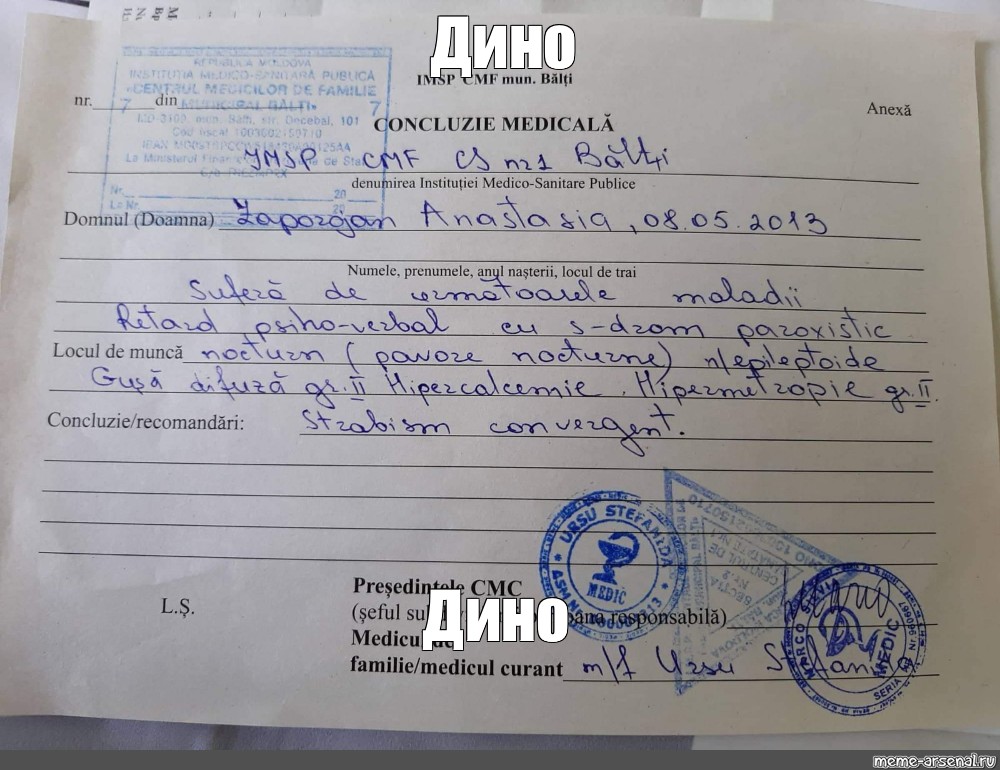 Дино
IMSP CMF mun. Bălți
REPUBLICA MOLDOVA
INSTITUȚIA MEDICO-SANITARĂ PUBLICĂ
CENTRUL MEDICILOR DE FAMILIE
MUNICIPAL BĂLȚI
nr. 7 din 7
Anexă
MD-3100, mun. Bălți, str. Decebal, 101
CONCLUZIE MEDICALĂ
IMSP CMF CS nr 1 Bălți
denumirea Instituției Medico-Sanitare Publice
Nr. 20
La Nr. 20
Domnul (Doamna) Zaporojan Anastasia, 08.05.2013
Numele, prenumele, anul nașterii, locul de trai
Suferă de următoarele maladii
Retard psiho-verbal cu s-drom paroxistic
Locul de muncă nocturn (pavore nocturne) n/epileptoide
Gușă difuză gr. II Hipercalcemie. Hipermetropie gr. II.
Concluzie/recomandări: Strabism convergent.
URSU STEFANIDA
MEDIC
Președintele CMC
L.Ș.
(șeful responsabilă)
Дино
Medicul de
familie/medicul curant m/f Ursu Stefanida
MARCO SILVIA
MEDIC
SERIA
meme-arsenal.ru